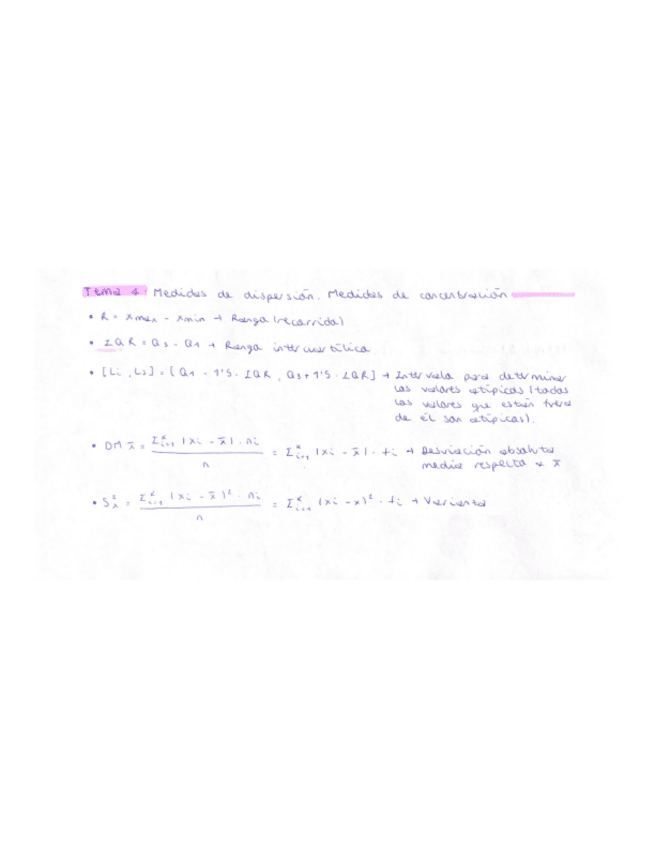 Tema 4. Medidas de dispersión. Medidas de concentración
• R = xmax - xmin → Rango (recorrido)
• IQR = Q3 - Q1 → Rango intercuartílico
• [Li, Ls] = [Q1 - 1'5 · IQR, Q3 + 1'5 · IQR] → Intervalo para determinar
los valores atípicos (todos
los valores que estén fuera
de él son atípicos).
• DM x̄ = Σᵏᵢ₌₁ |xi - x̄| · ni / n = Σᵏᵢ₌₁ |xi - x̄| · fi → Desviación absoluta
media respecto a x̄
• S²ₓ = Σᵏᵢ₌₁ (xi - x̄)² · ni / n = Σᵏᵢ₌₁ (xi - x)² · fi → Varianza